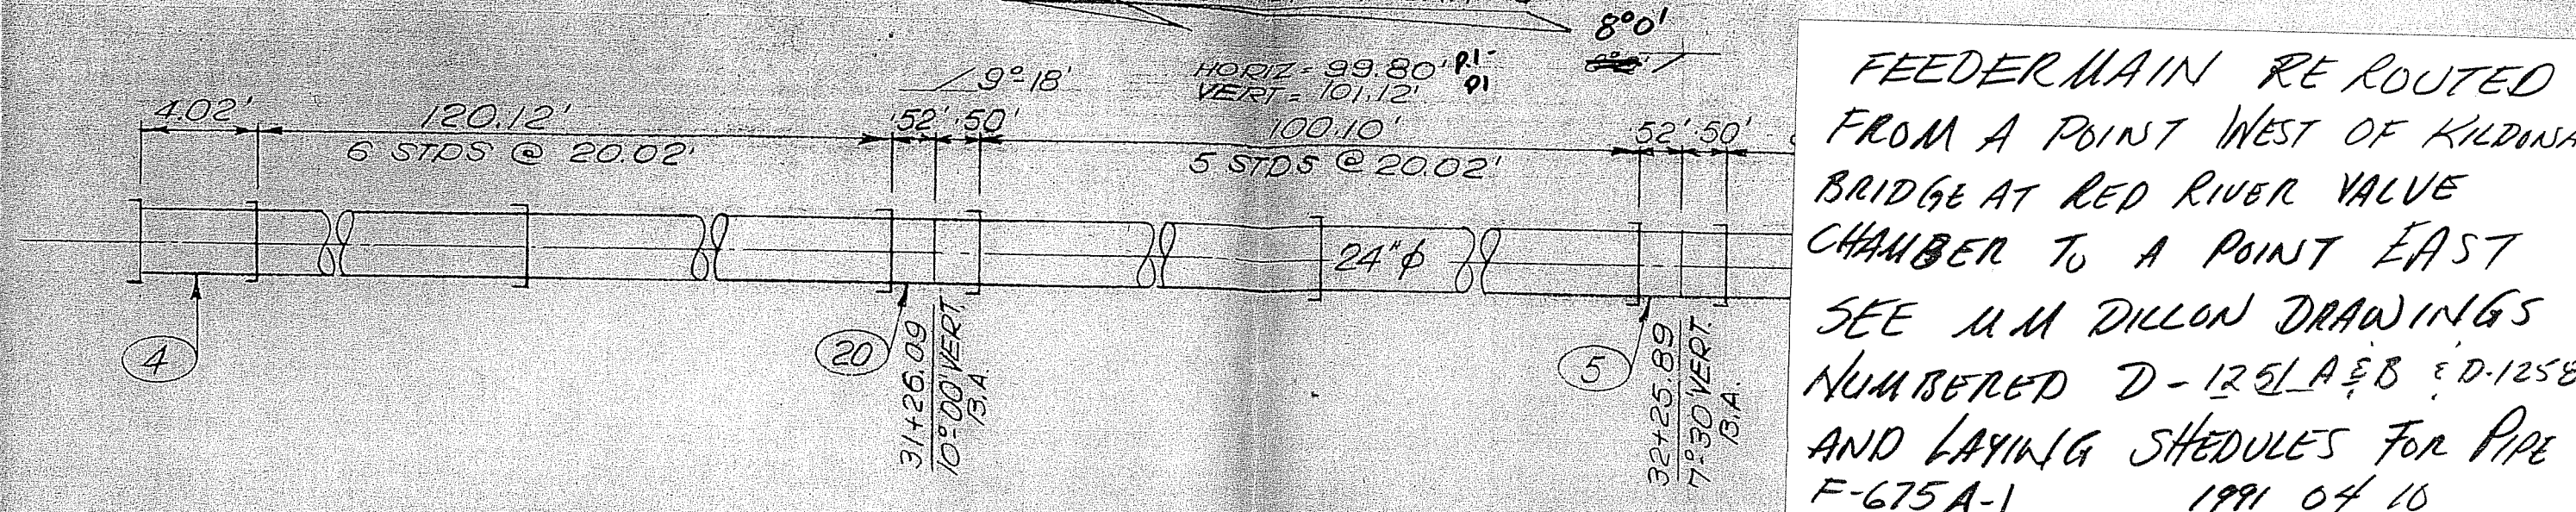 8°0'
HORIZ = 99.80' P.I-
VERT = 101.12' PI
9°-18'
4.02'
120.12'
6 STDS @ 20.02'
.52' .50'
100.10'
5 STDS @ 20.02'
.52' .50'
24"ϕ
4
20
31+26.09
10°-00' VERT.
B.A.
5
32+25.89
7°-30' VERT.
B.A.
FEEDERMAIN RE ROUTED
FROM A POINT WEST OF KILDONA
BRIDGE AT RED RIVER VALVE
CHAMBER TO A POINT EAST
SEE MM DILLON DRAWINGS
NUMBERED D-1251 A & B & D-1258
AND LAYING SHEDULES FOR PIPE
F-675 A-1 1991 04 10